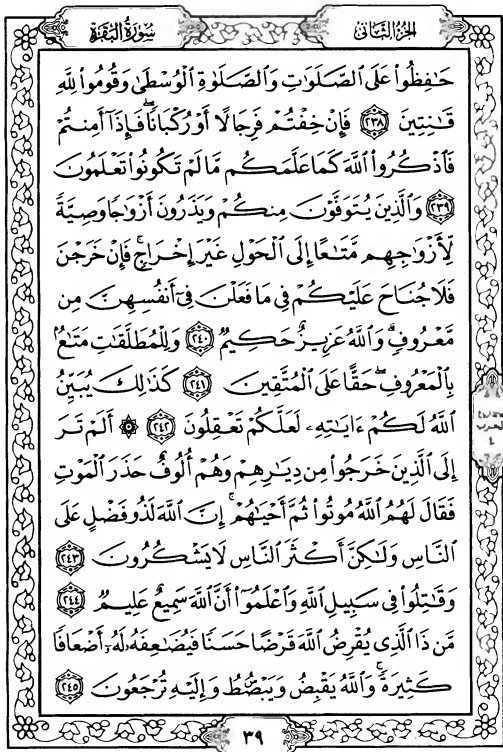 سورة البقرة
الجزء الثاني
حَـٰفِظُوا۟ عَلَى ٱلصَّلَوَٰتِ وَٱلصَّلَوٰةِ ٱلْوُسْطَىٰ وَقُومُوا۟ لِلَّهِ
قَـٰنِتِينَ ٢٣٨ فَإِنْ خِفْتُمْ فَرِجَالًا أَوْ رُكْبَانًا ۖ فَإِذَآ أَمِنتُمْ
فَٱذْكُرُوا۟ ٱللَّهَ كَمَا عَلَّمَكُم مَّا لَمْ تَكُونُوا۟ تَعْلَمُونَ
٢٣٩ وَٱلَّذِينَ يُتَوَفَّوْنَ مِنكُمْ وَيَذَرُونَ أَزْوَٰجًا وَصِيَّةً
لِّأَزْوَٰجِهِم مَّتَـٰعًا إِلَى ٱلْحَوْلِ غَيْرَ إِخْرَاجٍ ۚ فَإِنْ خَرَجْنَ
فَلَا جُنَاحَ عَلَيْكُمْ فِى مَا فَعَلْنَ فِىٓ أَنفُسِهِنَّ مِن
مَّعْرُوفٍ ۗ وَٱللَّهُ عَزِيزٌ حَكِيمٌ ٢٤٠ وَلِلْمُطَلَّقَـٰتِ مَتَـٰعٌۢ
بِٱلْمَعْرُوفِ ۖ حَقًّا عَلَى ٱلْمُتَّقِينَ ٢٤١ كَذَٰلِكَ يُبَيِّنُ
ٱللَّهُ لَكُمْ ءَايَـٰتِهِۦ لَعَلَّكُمْ تَعْقِلُونَ ٢٤٢ ۞ أَلَمْ تَرَ
إِلَى ٱلَّذِينَ خَرَجُوا۟ مِن دِيَـٰرِهِمْ وَهُمْ أُلُوفٌ حَذَرَ ٱلْمَوْتِ
فَقَالَ لَهُمُ ٱللَّهُ مُوتُوا۟ ثُمَّ أَحْيَـٰهُمْ ۚ إِنَّ ٱللَّهَ لَذُو فَضْلٍ عَلَى
ٱلنَّاسِ وَلَـٰكِنَّ أَكْثَرَ ٱلنَّاسِ لَا يَشْكُرُونَ ٢٤٣
وَقَـٰتِلُوا۟ فِى سَبِيلِ ٱللَّهِ وَٱعْلَمُوٓا۟ أَنَّ ٱللَّهَ سَمِيعٌ عَلِيمٌ ٢٤٤
مَّن ذَا ٱلَّذِى يُقْرِضُ ٱللَّهَ قَرْضًا حَسَنًا فَيُضَـٰعِفَهُۥ لَهُۥٓ أَضْعَافًا
كَثِيرَةً ۚ وَٱللَّهُ يَقْبِضُ وَيَبْصُۜطُ وَإِلَيْهِ تُرْجَعُونَ ٢٤٥
٣٩